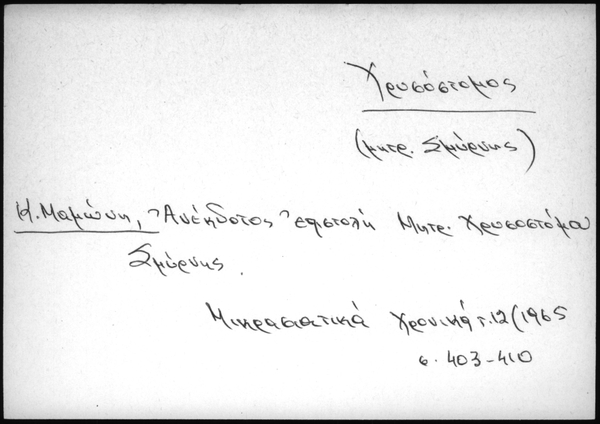 Χρυσόστομος
(μητρ. Σμύρνης)
Κ. Μαμώνη, Ἀνέκδοτος ἐπιστολή Μητρ. Χρυσοστόμου
Σμύρνης.
Μικρασιατικά Χρονικά τ. 12 (1965
σ. 403-410